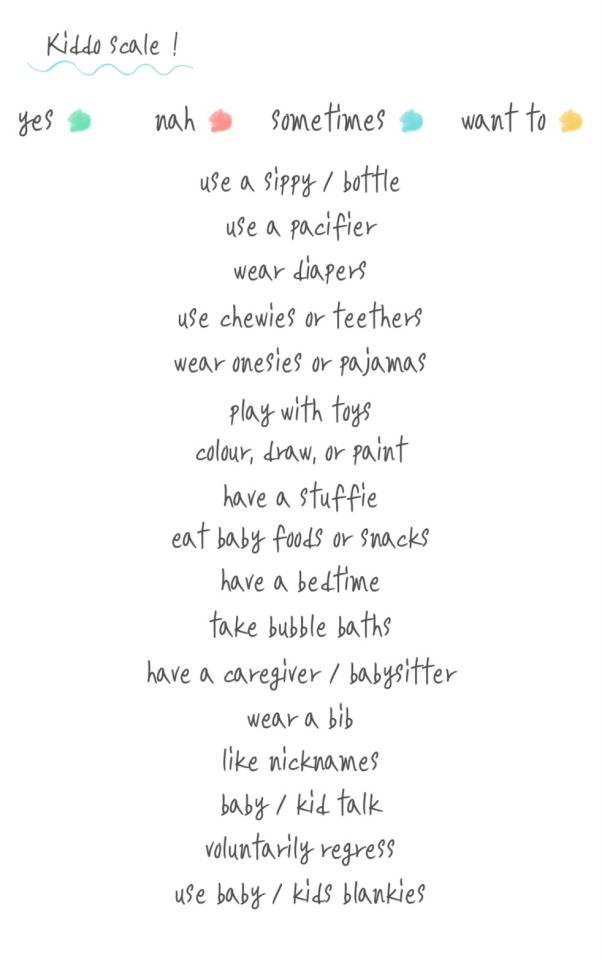 Kiddo scale !
yes nah sometimes want to
use a sippy / bottle
use a pacifier
wear diapers
use chewies or teethers
wear onesies or pajamas
play with toys
colour, draw, or paint
have a stuffie
eat baby foods or snacks
have a bedtime
take bubble baths
have a caregiver / babysitter
wear a bib
like nicknames
baby / kid talk
voluntarily regress
use baby / kids blankies